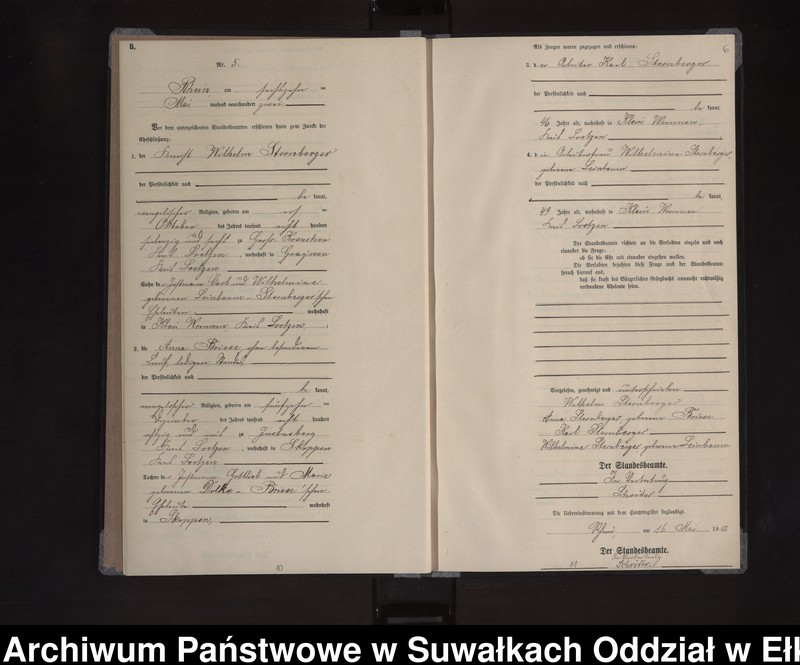 B.
Nr. 5.
Rhein, am sechszehn ten
Mai tausend neunhundert zwei
Vor dem unterzeichneten Standesbeamten erschienen heute zum Zwecke der
Eheschließung:
1. der Knecht Wilhelm Sternberger
der Persönlichkeit nach
be kannt,
evangelischer Religion, geboren am
Oktober des Jahres tausend acht hundert
siebenzig und sechs zu Gross
Kreis Loetzen, wohnhaft in
Kreis Loetzen
Sohn de Carl und Wilhelmine
geborenen Leinbaum - Sternberger'schen
Eheleuten wohnhaft
in Klein Wronnen, Kreis Loetzen,
2. die Anna Briese, ohne besonderen
Beruf, ledigen Standes,
der Persönlichkeit nach
be kannt,
evangelischer Religion, geboren am fünfzehn ten
Dezember des Jahres tausend acht hundert
achtzig und
Kreis Loetzen, wohnhaft in Skoppen
Kreis Loetzen
Tochter de Gottlieb und Marie
geborenen - Briese'schen
Eheleute wohnhaft
in Skoppen,
10
6
Als Zeugen waren zugezogen und erschienen:
3. d er Arbeiter Karl Sternberger
der Persönlichkeit nach
be kannt,
46 Jahre alt, wohnhaft in Klein Wronnen,
Kreis Loetzen
4. d ie Arbeiterfrau Wilhelmine Sternberger,
geborene Leinbaum
der Persönlichkeit nach
be kannt,
49 Jahre alt, wohnhaft in Klein Wronnen
Kreis Loetzen
Der Standesbeamte richtete an die Verlobten einzeln und nach
einander die Frage:
ob sie die Ehe mit einander eingehen wollen.
Die Verlobten bejahten diese Frage und der Standesbeamte
sprach hierauf aus,
daß sie kraft des Bürgerlichen Gesetzbuchs nunmehr rechtmäßig
verbundene Eheleute seien.
Vorgelesen, genehmigt und unterschrieben
Wilhelm Sternberger
Anna Sternberger geborene Briese
Karl Sternberger
Wilhelmine Sternberger geborene Leinbaum
Der Standesbeamte.
In Vertretung
Schröter
Die Uebereinstimmung mit dem Hauptregister beglaubigt.
Rhein, am 16. Mai 1902
Der Standesbeamte.
In Vertretung
Schröter
11
Archiwum Państwowe w Suwałkach Oddział w Ełk